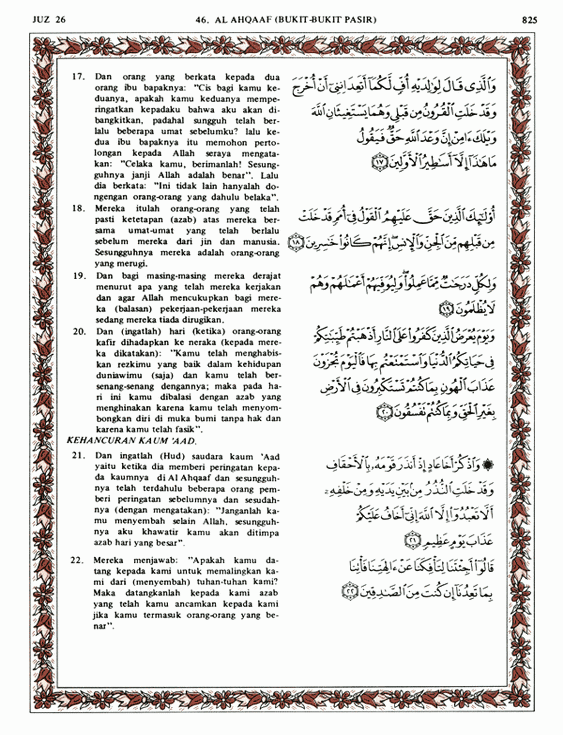 JUZ 26
46. AL AHQAAF (BUKIT-BUKIT PASIR)
825
17. Dan orang yang berkata kepada dua
orang ibu bapaknya: "Cis bagi kamu ke-
duanya, apakah kamu keduanya mempe-
ringatkan kepadaku bahwa aku akan di-
bangkitkan, padahal sungguh telah ber-
lalu beberapa umat sebelumku? lalu ke-
dua ibu bapaknya itu memohon perto-
longan kepada Allah seraya mengata-
kan: "Celaka kamu, berimanlah! Sesung-
guhnya janji Allah adalah benar". Lalu
dia berkata: "Ini tidak lain hanyalah do-
ngengan orang-orang yang dahulu belaka".
18. Mereka itulah orang-orang yang telah
pasti ketetapan (azab) atas mereka ber-
sama umat-umat yang telah berlalu
sebelum mereka dari jin dan manusia.
Sesungguhnya mereka adalah orang-orang
yang merugi.
19. Dan bagi masing-masing mereka derajat
menurut apa yang telah mereka kerjakan
dan agar Allah mencukupkan bagi mere-
ka (balasan) pekerjaan-pekerjaan mereka
sedang mereka tiada dirugikan.
20. Dan (ingatlah) hari (ketika) orang-orang
kafir dihadapkan ke neraka (kepada mere-
ka dikatakan): "Kamu telah menghabis-
kan rezkimu yang baik dalam kehidupan
duniawimu (saja) dan kamu telah ber-
senang-senang dengannya; maka pada ha-
ri ini kamu dibalasi dengan azab yang
menghinakan karena kamu telah menyom-
bongkan diri di muka bumi tanpa hak dan
karena kamu telah fasik".
KEHANCURAN KAUM 'AAD.
21. Dan ingatlah (Hud) saudara kaum 'Aad
yaitu ketika dia memberi peringatan kepa-
da kaumnya di Al Ahqaaf dan sesungguh-
nya telah terdahulu beberapa orang pem-
beri peringatan sebelumnya dan sesudah-
nya (dengan mengatakan): "Janganlah ka-
mu menyembah selain Allah, sesungguh-
nya aku khawatir kamu akan ditimpa
azab hari yang besar".
22. Mereka menjawab: "Apakah kamu da-
tang kepada kami untuk memalingkan ka-
mi dari (menyembah) tuhan-tuhan kami?
Maka datangkanlah kepada kami azab
yang telah kamu ancamkan kepada kami
jika kamu termasuk orang-orang yang be-
nar".
وَالَّذِي قَالَ لِوَالِدَيْهِ أُفٍّ لَّكُمَا أَتَعِدَانِنِي أَنْ أُخْرَجَ
وَقَدْ خَلَتِ الْقُرُونُ مِن قَبْلِي وَهُمَا يَسْتَغِيثَانِ اللَّهَ
وَيْلَكَ ءَامِنْ إِنَّ وَعْدَ اللَّهِ حَقٌّ فَيَقُولُ
مَا هَٰذَا إِلَّا أَسَاطِيرُ الْأَوَّلِينَ ١٧
أُولَٰئِكَ الَّذِينَ حَقَّ عَلَيْهِمُ الْقَوْلُ فِي أُمَمٍ قَدْ خَلَتْ
مِن قَبْلِهِم مِّنَ الْجِنِّ وَالْإِنسِ إِنَّهُمْ كَانُوا خَاسِرِينَ ١٨
وَلِكُلٍّ دَرَجَاتٌ مِّمَّا عَمِلُوا وَلِيُوَفِّيَهُمْ أَعْمَالَهُمْ وَهُمْ
لَا يُظْلَمُونَ ١٩
وَيَوْمَ يُعْرَضُ الَّذِينَ كَفَرُوا عَلَى النَّارِ أَذْهَبْتُمْ طَيِّبَاتِكُمْ
فِي حَيَاتِكُمُ الدُّنْيَا وَاسْتَمْتَعْتُم بِهَا فَالْيَوْمَ تُجْزَوْنَ
عَذَابَ الْهُونِ بِمَا كُنتُمْ تَسْتَكْبِرُونَ فِي الْأَرْضِ
بِغَيْرِ الْحَقِّ وَبِمَا كُنتُمْ تَفْسُقُونَ ٢٠
۞ وَاذْكُرْ أَخَا عَادٍ إِذْ أَنذَرَ قَوْمَهُ بِالْأَحْقَافِ
وَقَدْ خَلَتِ النُّذُرُ مِن بَيْنِ يَدَيْهِ وَمِنْ خَلْفِهِ
أَلَّا تَعْبُدُوا إِلَّا اللَّهَ إِنِّي أَخَافُ عَلَيْكُمْ
عَذَابَ يَوْمٍ عَظِيمٍ ٢١
قَالُوا أَجِئْتَنَا لِتَأْفِكَنَا عَنْ ءَالِهَتِنَا فَأْتِنَا
بِمَا تَعِدُنَا إِن كُنتَ مِنَ الصَّادِقِينَ ٢٢